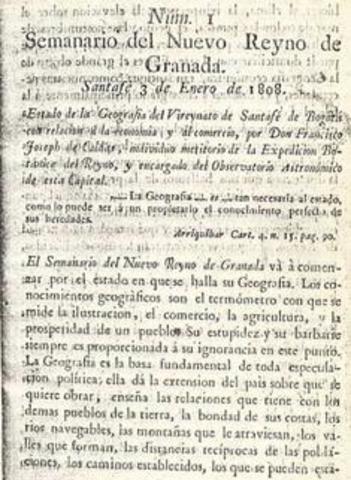 Núm. 1
Semanario del Nuevo Reyno de
Granada.
Santafé 3 de Enero de 1808.
Estado de la Geografia del Vireynato de Santafé de Bogotá
con relacion á la economia, y al comercio, por Don Francisco
Joseph de Caldas, individuo meritorio de la Expedicion Bo-
tánica del Reyno, y encargado del Observatorio Astronómico
de esta Capital.
La Geografia es tan necesaria al estado,
como lo puede ser á un propietario el conocimiento perfecto de
sus heredades.
Arriquibar Cart. 4. n. 15. pag. 90.
El Semanario del Nuevo Reyno de Granada vá á comen-
zar por el estado en que se halla su Geografia. Los co-
nocimientos geográficos son el termómetro con que se
mide la ilustracion, el comercio, la agricultura, y la
prosperidad de un pueblo. Su estupidez y su barbarie
siempre es proporcionada á su ignorancia en este punto.
La Geografia es la basa fundamental de toda especula-
cion política; ella dá la extension del pais sobre que se
quiere obrar, enseña las relaciones que tiene con los
demas pueblos de la tierra, la bondad de sus costas, los
rios navegables, las montañas que le atraviesan, los va-
lles que forman, las distancias recíprocas de las pobla-
ciones, los caminos establecidos, los que se pueden esta-